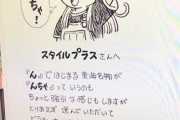 んちゃ!
スタイルプラスさんへ
『ん』ではじまる東海名物が
『んちゃ』っていうのも
ちょっと強引な感じもしますが
とりあえず 選んでいただいて